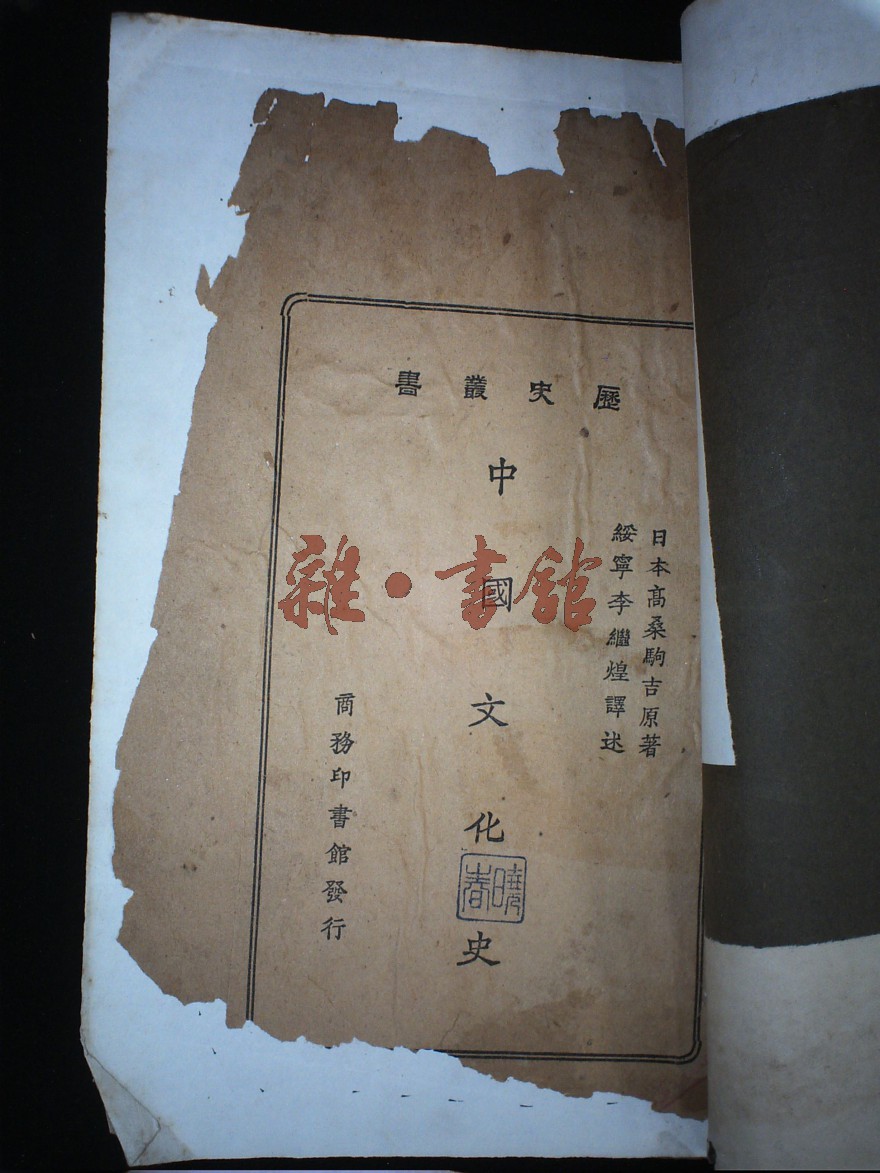 歷史叢書
日本高桑駒吉原著
綏寧李繼煌譯述
中國文化史
曉春
商務印書館發行
雜·書館